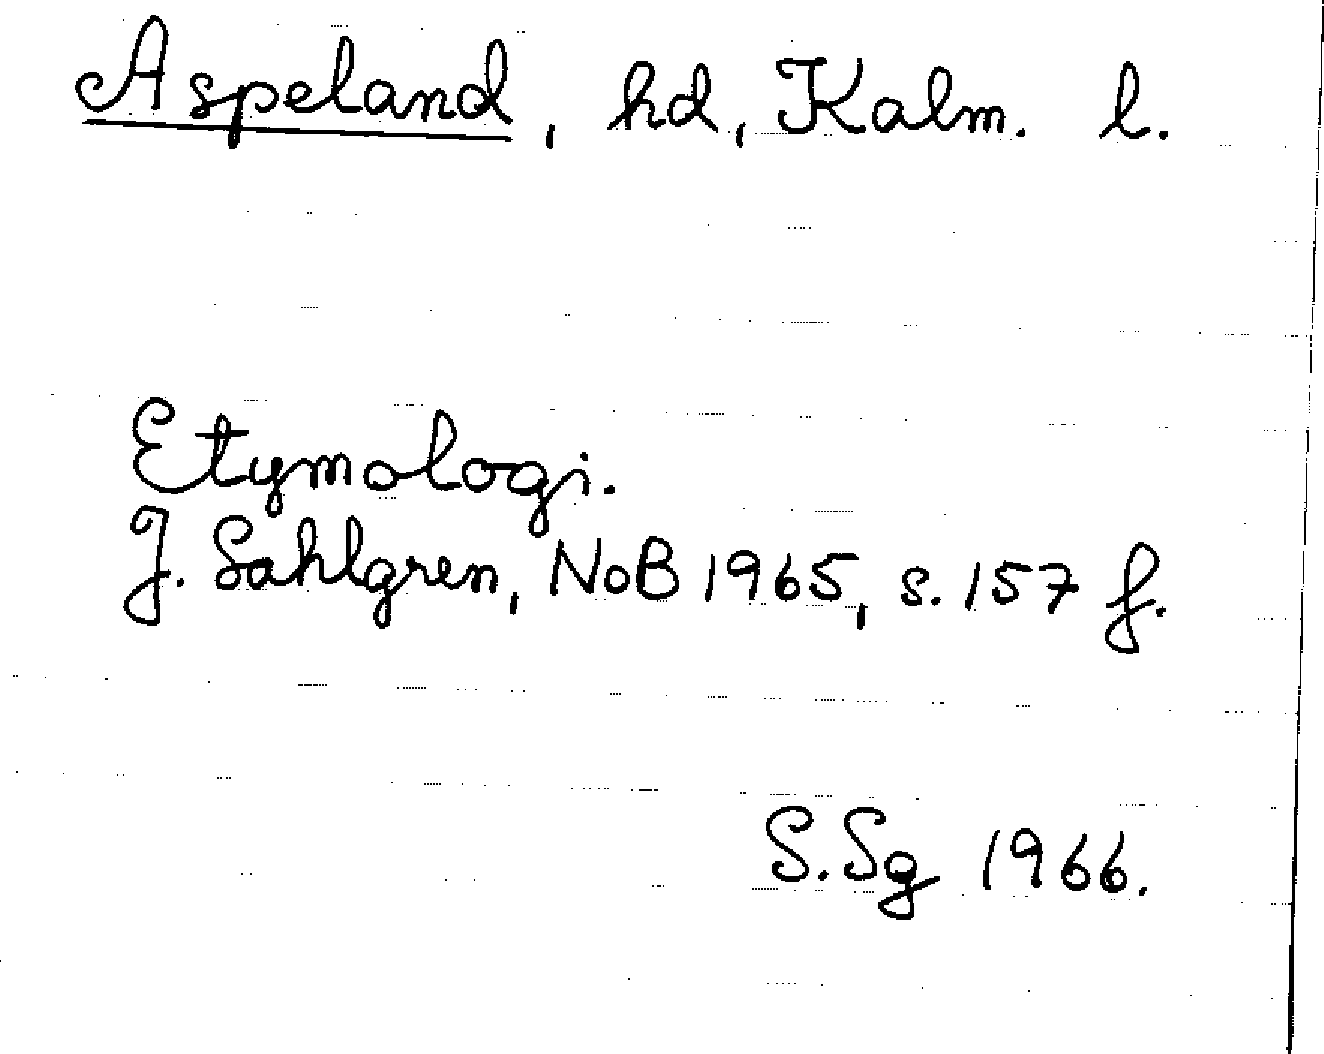 Aspeland, hd, Kalm. l.
Etymologi.
J. Sahlgren, NoB 1965, s. 157 f.
S.Sg 1966.